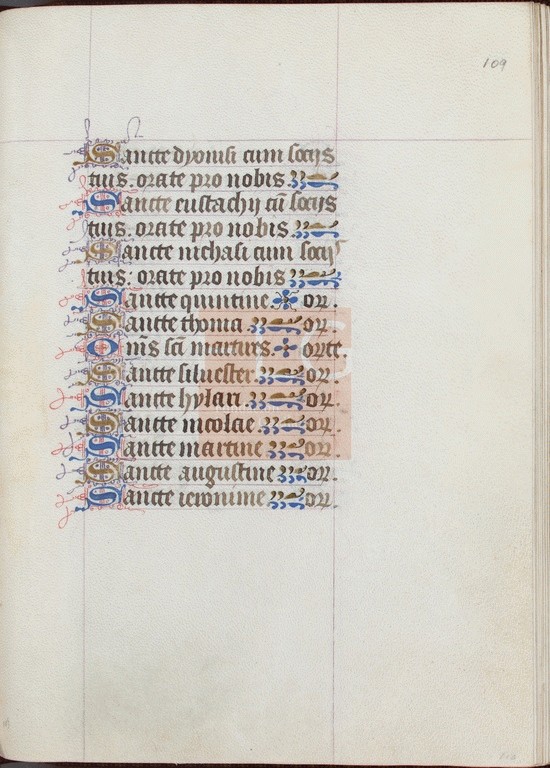 109
Sancte dyonisi cum socijs
tuis. orate pro nobis
Sancte eustachij cū socijs
tuis. orate pro nobis.
Sancte nichasi cum socijs
tuis: orate pro nobis
Sancte quintine or.
Sancte thoma or.
Om̄s sc̄i martires. orate.
Sancte siluester. or.
Sancte hylari or.
Sancte nicolae or.
Sancte martine or.
Sancte augustine or.
Sancte ieronime or.